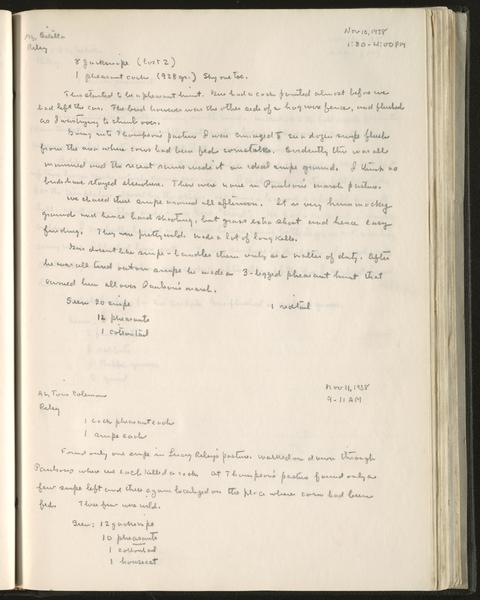 Nov 10, 1938
AL,
Riley
1:30 - 4:00 PM
8 jacksnipe (lost 2)
1 pheasant cock (928 gr.) Shyone toe.
This started to be a pheasant hunt. Gus had a cock pointed almost before we
had left the car. The bird however was the other side of a hogwire fence, and flushed
as I was trying to climb over.
Going into Thompson's pasture I was amazed to see a dozen snipe flush
from the area where cows had been fed cornstalks. Evidently this was all
manured and the recent rains made it an ideal snipe ground. I think no
birds have stayed elsewhere. There were none in Paulson's marsh pasture.
We chased these snipe around all afternoon. It is very hummocky
ground and hence hard shooting, but grass extra short and hence easy
finding. They are pretty wild. Made a lot of long kills.
Gus doesn't like snipe - handles them only as a matter of duty. After
he was all tired out on snipe he made a 3-legged pheasant hunt that
ran him all over Paulson's marsh.
Seen 20 snipe
1 redtail
12 pheasants
1 cottontail
Nov 11, 1938
AL, Tom Coleman
9 - 11 AM
Riley
1 cock pheasant each
1 snipe each
Found only one snipe in Riley's pasture. Walked on down through
Paulsons where we each killed a cock. At Thompson's pasture found only a
few snipe left and these again localized on the place where corn had been
fed. These few were wild.
Seen: 12 jacksnipe
10 pheasants
1 cottontail
1 housecat